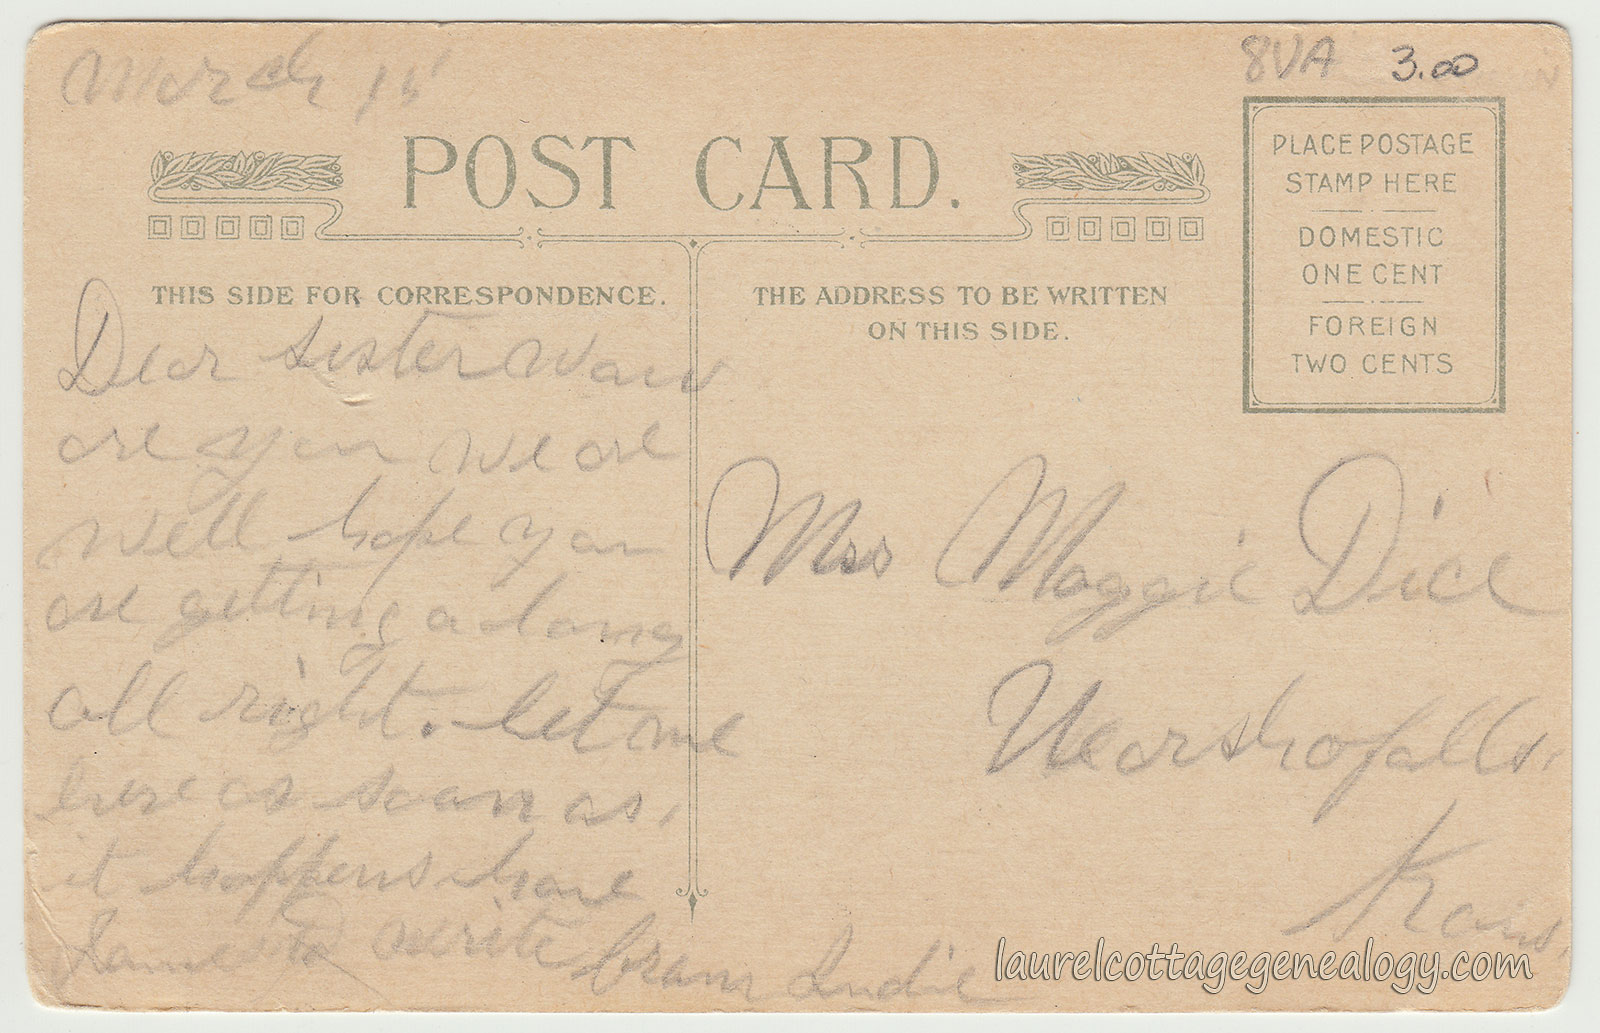 March 15
8VA 3.00
POST CARD.
PLACE POSTAGE
STAMP HERE
DOMESTIC
ONE CENT
FOREIGN
TWO CENTS
THIS SIDE FOR CORRESPONDENCE.
THE ADDRESS TO BE WRITTEN
ON THIS SIDE.
Dear sister
are you we are
well hope you
are getting a long
all right. let me
as soon as
it happens have
write from
Mrs Maggie Dice
Kans.
laurelcottagegenealogy.com